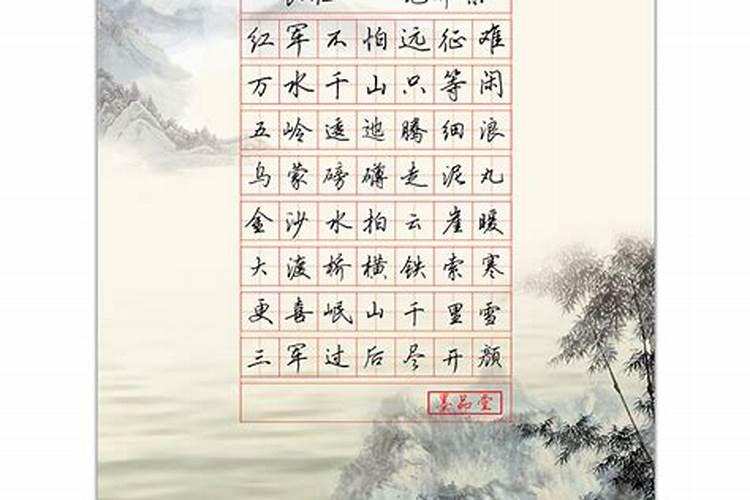 红军不怕远征难
万水千山只等闲
五岭逶迤腾细浪
乌蒙磅礴走泥丸
金沙水拍云崖暖
大渡桥横铁索寒
更喜岷山千里雪
三军过后尽开颜
墨品堂